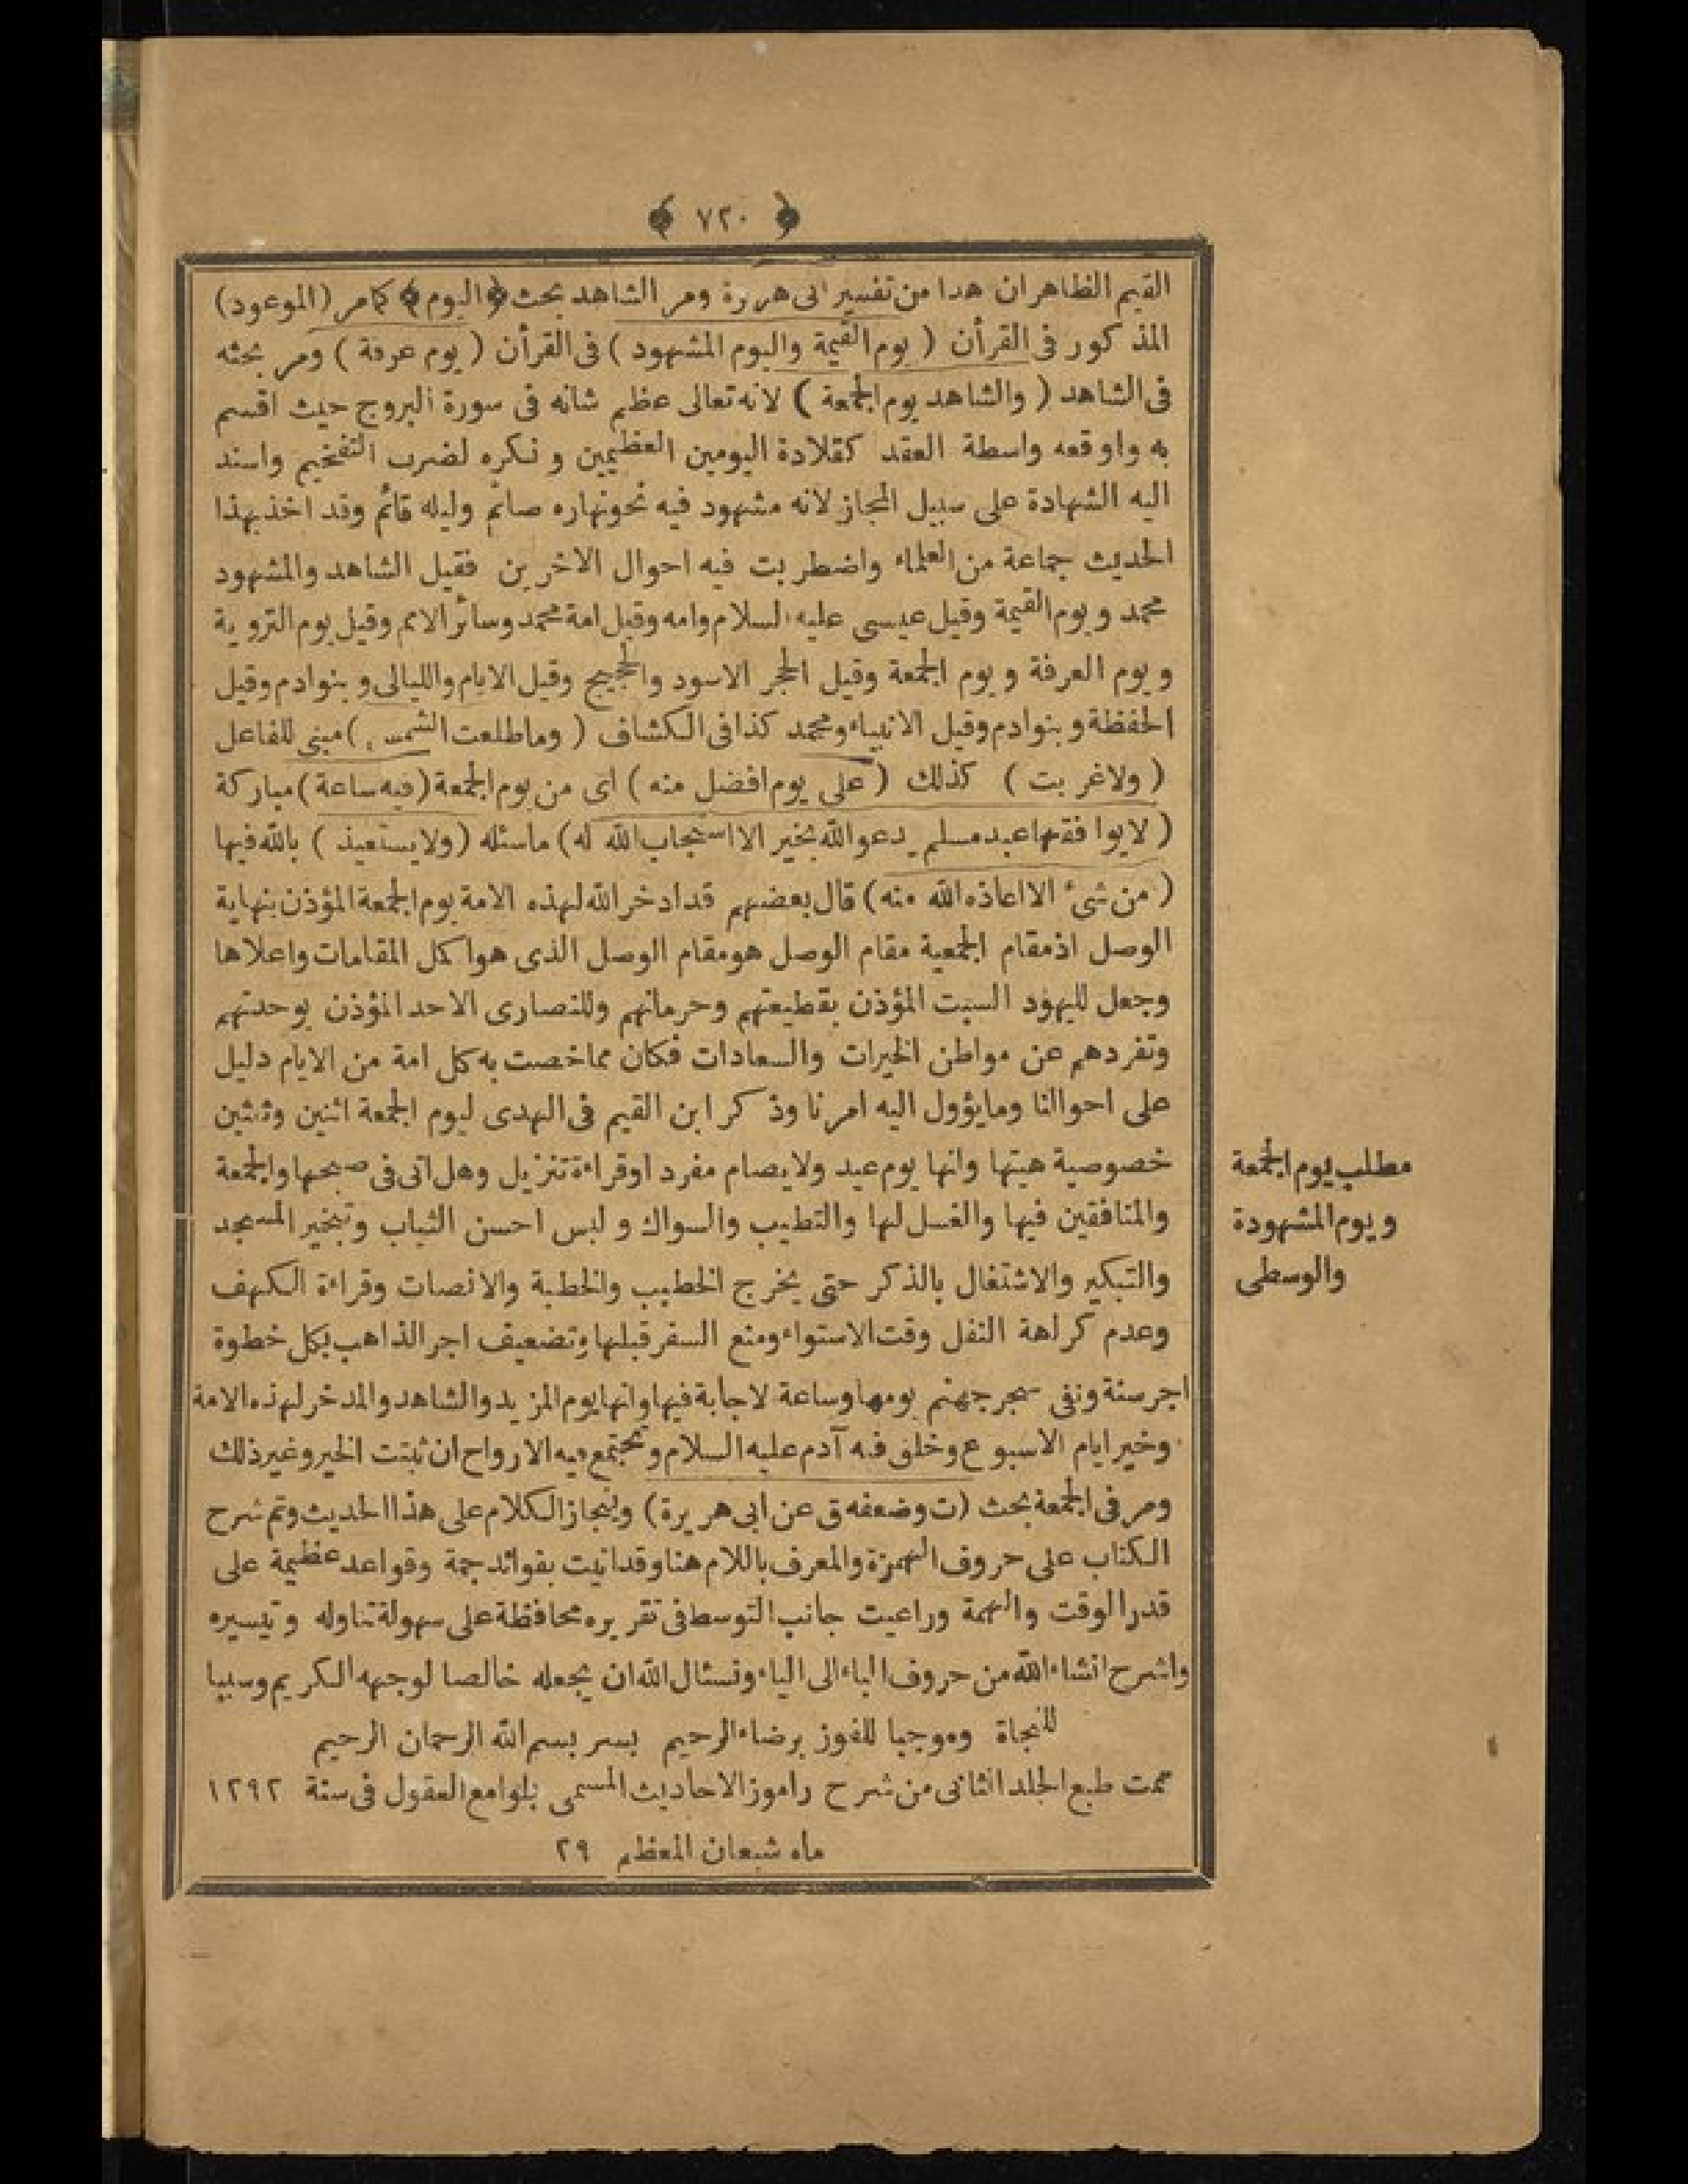 ﴿ ٧٢٠ ﴾
القيم الظاهر ان هذا من تفسير ابى هريرة ومر الشاهد بحث ﴿ اليوم ﴾ كمامر (الموعود)
المذكور فى القرأن ( يوم القيمة واليوم المشهود ) فى القرأن ( يوم عرفة ) ومر بحثه
فى الشاهد ( والشاهد يوم الجمعة ) لانه تعالى عظم شانه فى سورة البروج حيث اقسم
به واوقعه واسطة العقد كقلادة اليومين العظيمين و نكره لضرب التفخيم واسند
اليه الشهادة على سبيل المجاز لانه مشهود فيه نحونهاره صائم وليله قائم وقد اخذ بهذا
الحديث جماعة من العلماء واضطربت فيه احوال الاخرين فقيل الشاهد والمشهود
محمد ويوم القيمة وقيل عيسى عليه السلام وامه وقيل امة محمد وسائر الامم وقيل يوم التروية
ويوم العرفة ويوم الجمعة وقيل الحجر الاسود والحجيج وقيل الايام والليالى وبنوادم وقيل
الحفظة وبنوادم وقيل الانبياء ومحمد كذا فى الكشاف ( وماطلعت الشمس ) مبنى للفاعل
( ولاغربت ) كذلك ( على يوم افضل منه ) اى من يوم الجمعة ( فيه ساعة ) مباركة
( لايوافقها عبد مسلم يدعو الله بخير الا استجاب الله له ) ماسئله ( ولايستعيذ ) بالله فيها
( من شئ الا اعاذه الله منه ) قال بعضهم قد ادخر الله لهذه الامة يوم الجمعة المؤذن بنهاية
الوصل اذمقام الجمعية مقام الوصل هومقام الوصل الذى هو اكمل المقامات واعلاها
وجعل لليهود السبت المؤذن بقطيعتهم وحرمانهم وللنصارى الاحد المؤذن بوحدتهم
وتفردهم عن مواطن الخيرات والسعادات فكان مماخصت به كل امة من الايام دليل
على احوالنا ومايؤول اليه امرنا وذكر ابن القيم فى الهدى ليوم الجمعة اثنين وثثين
خصوصية هيتها وانها يوم عيد ولايصام مفرد اوقراءة تنزيل وهل اتى فى صبحها والجمعة
والمنافقين فيها والغسل لها والتطيب والسواك و لبس احسن الثياب وتبخير المسجد
والتبكير والاشتغال بالذكر حتى يخرج الخطيب والخطبة والانصات وقراءة الكهف
وعدم كراهة النفل وقت الاستواء ومنع السفر قبلها وتضعيف اجر الذاهب بكل خطوة
اجر سنة ونفى سجر جهنم يومها وساعة لاجابة فيها وانها يوم المزيد والشاهد والمدخر لهذه الامة
وخير ايام الاسبوع وخلق فيه آدم عليه السلام وتجتمع فيه الارواح ان ثبتت الخير وغير ذلك
ومر فى الجمعة بحث (ت وضعفه ق عن ابى هريرة) وانجاز الكلام على هذا الحديث وتم شرح
الكتاب على حروف الهمزة والمعرف باللام هنا وقد اتيت بفوائد جمة وقواعد عظيمة على
قدر الوقت والهمة وراعيت جانب التوسط فى تقريره محافظة على سهولة تناوله وتيسيره
واشرح انشاء الله من حروف الباء الى الياء ونسئال الله ان يجعله خالصا لوجهه الكريم وسببا
للنجاة وموجبا للفوز برضاء الرحيم بسر بسم الله الرحمان الرحيم
تمت طبع الجلد الثانى من شرح راموز الاحاديث المسمى بلوامع العقول فى سنة ١٢٩٢
ماه شعبان المعظم ٢٩
مطلب يوم الجمعة
ويوم المشهودة
والوسطى